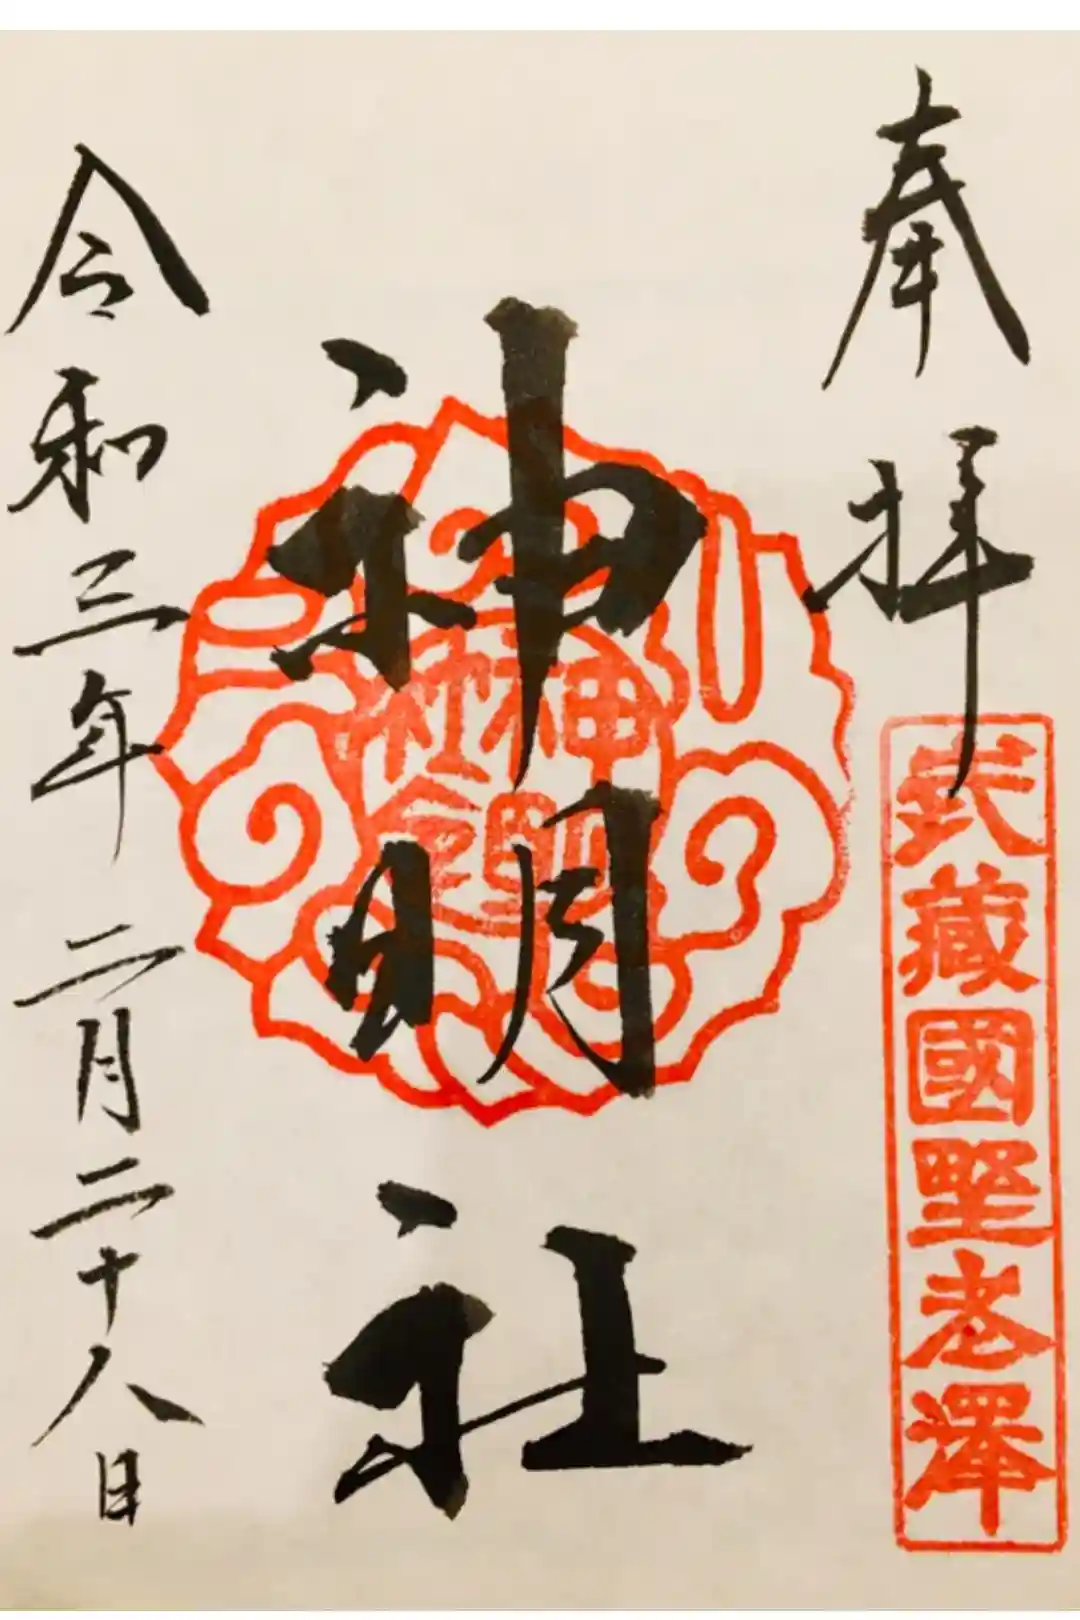 奉拝
武藏國野老澤
神明社
神明
社
令和三年二月二十八日